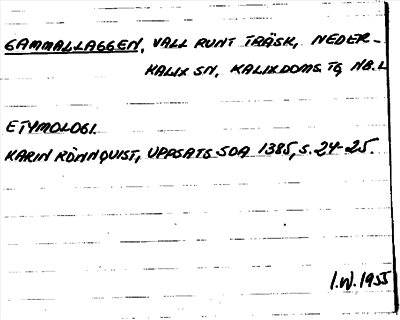 GAMMALLAGGEN, VALL RUNT TRÄSK, NEDER-
KALIX SN, KALIXDOMS TG, NB.L
ETYMOLOGI.
KARIN RÖNNQUIST, UPPSATS SOA 1385, S. 24-25.
I.W. 1955